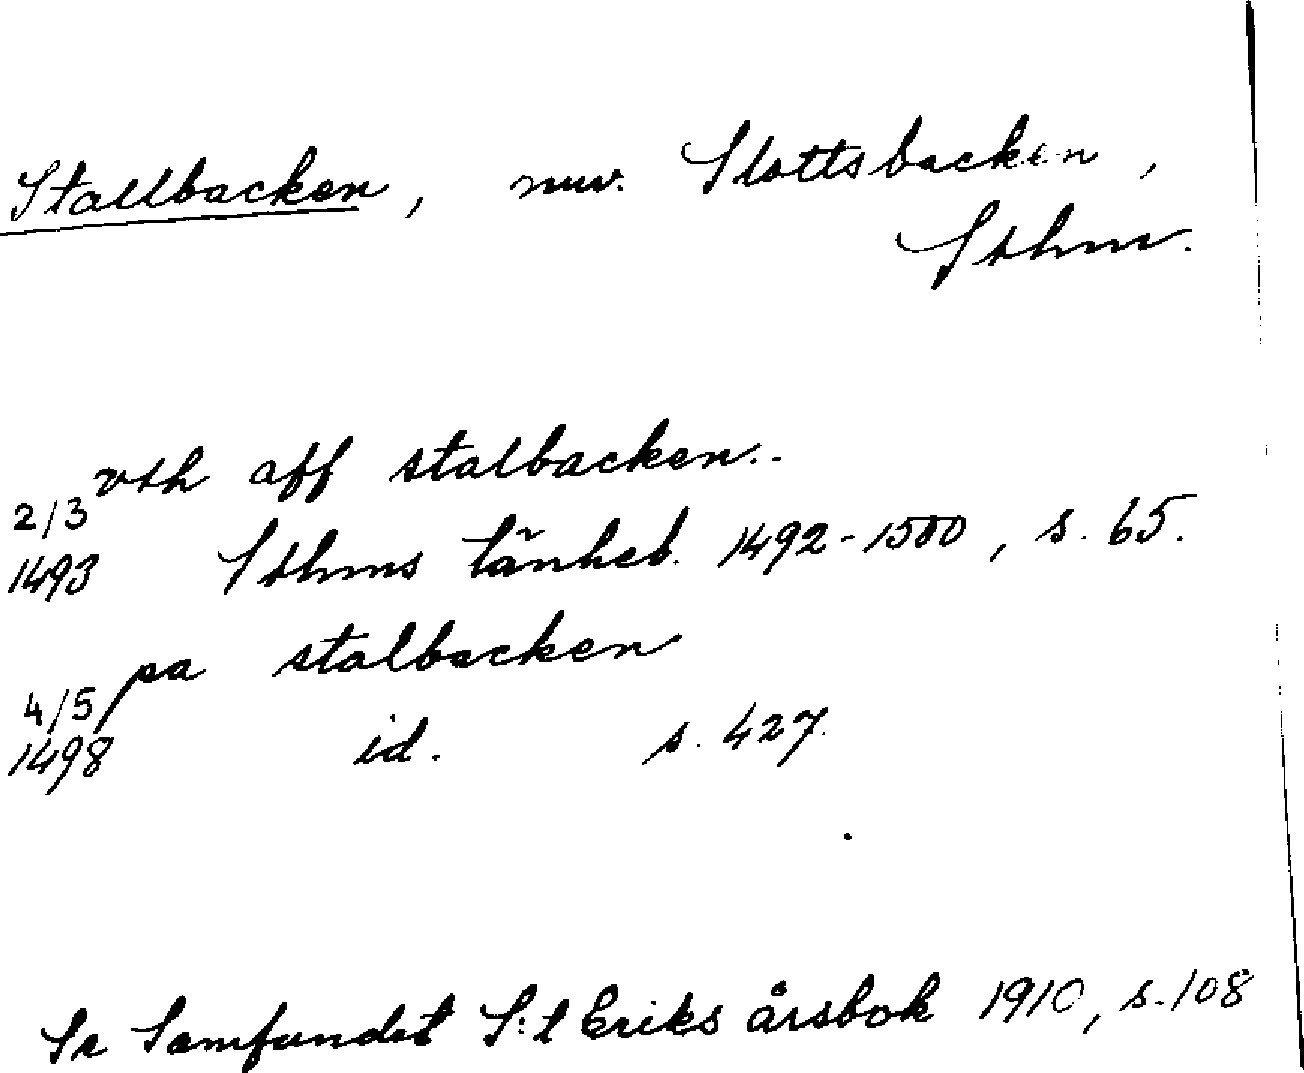 Stallbacken, nuv. Slottsbacken,
Sthm.
vth aff stalbacken..
2/3
1493 Sthms tänkeb. 1492-1500, s. 65.
pa stalbacken
4/5
1498 id. s. 427.
Se Samfundet S:t Eriks årsbok 1910, s. 108